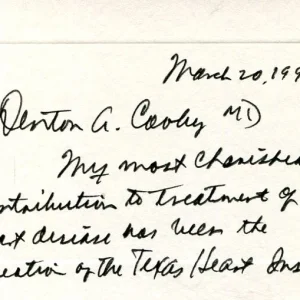 March 20, 199
Denton A. Cooley MD
My most cherished
ntribution to treatment of
art disease has been the
eation of the Texas Heart Ins